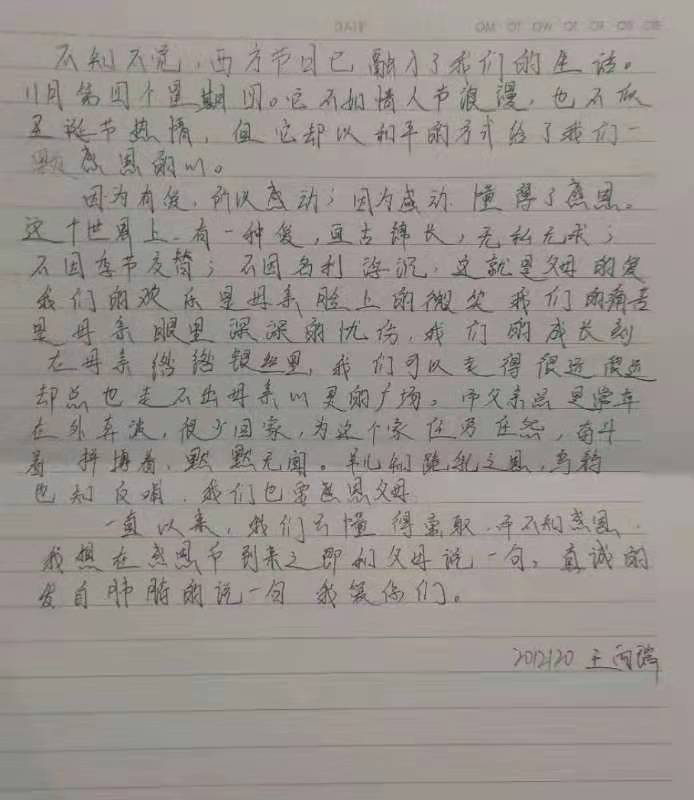 DATE MO TU WE TH FR SA SU
不知不觉，西方节日已融入了我们的生活。
11月第四个星期四。它不如情人节浪漫，也不似
圣诞节热情，但它却以和平的方式给了我们一
颗感恩的心。
因为有爱，所以感动；因为感动，懂得了感恩。
这个世界上，有一种爱，亘古绵长，无私无求；
不因季节交替；不因名利浮沉，这就是父母的爱
我们的欢乐是母亲脸上的微笑，我们的痛苦
是母亲眼里深深的忧伤，我们的成长刻
在母亲绺绺银丝里，我们可以走得很远很远
却总也走不出母亲心灵的广场。而父亲总是常年
在外奔波，很少回家，为这个家任劳任怨，奋斗
着 拼搏着，默默无闻。羊儿知跪乳之恩，乌鸦
也知反哺，我们也要感恩父母
一直以来，我们只懂得索取，而不知感恩，
我想在感恩节到来之即和父母说一句，真诚的
发自肺腑的说一句 我爱你们。
2012120 王